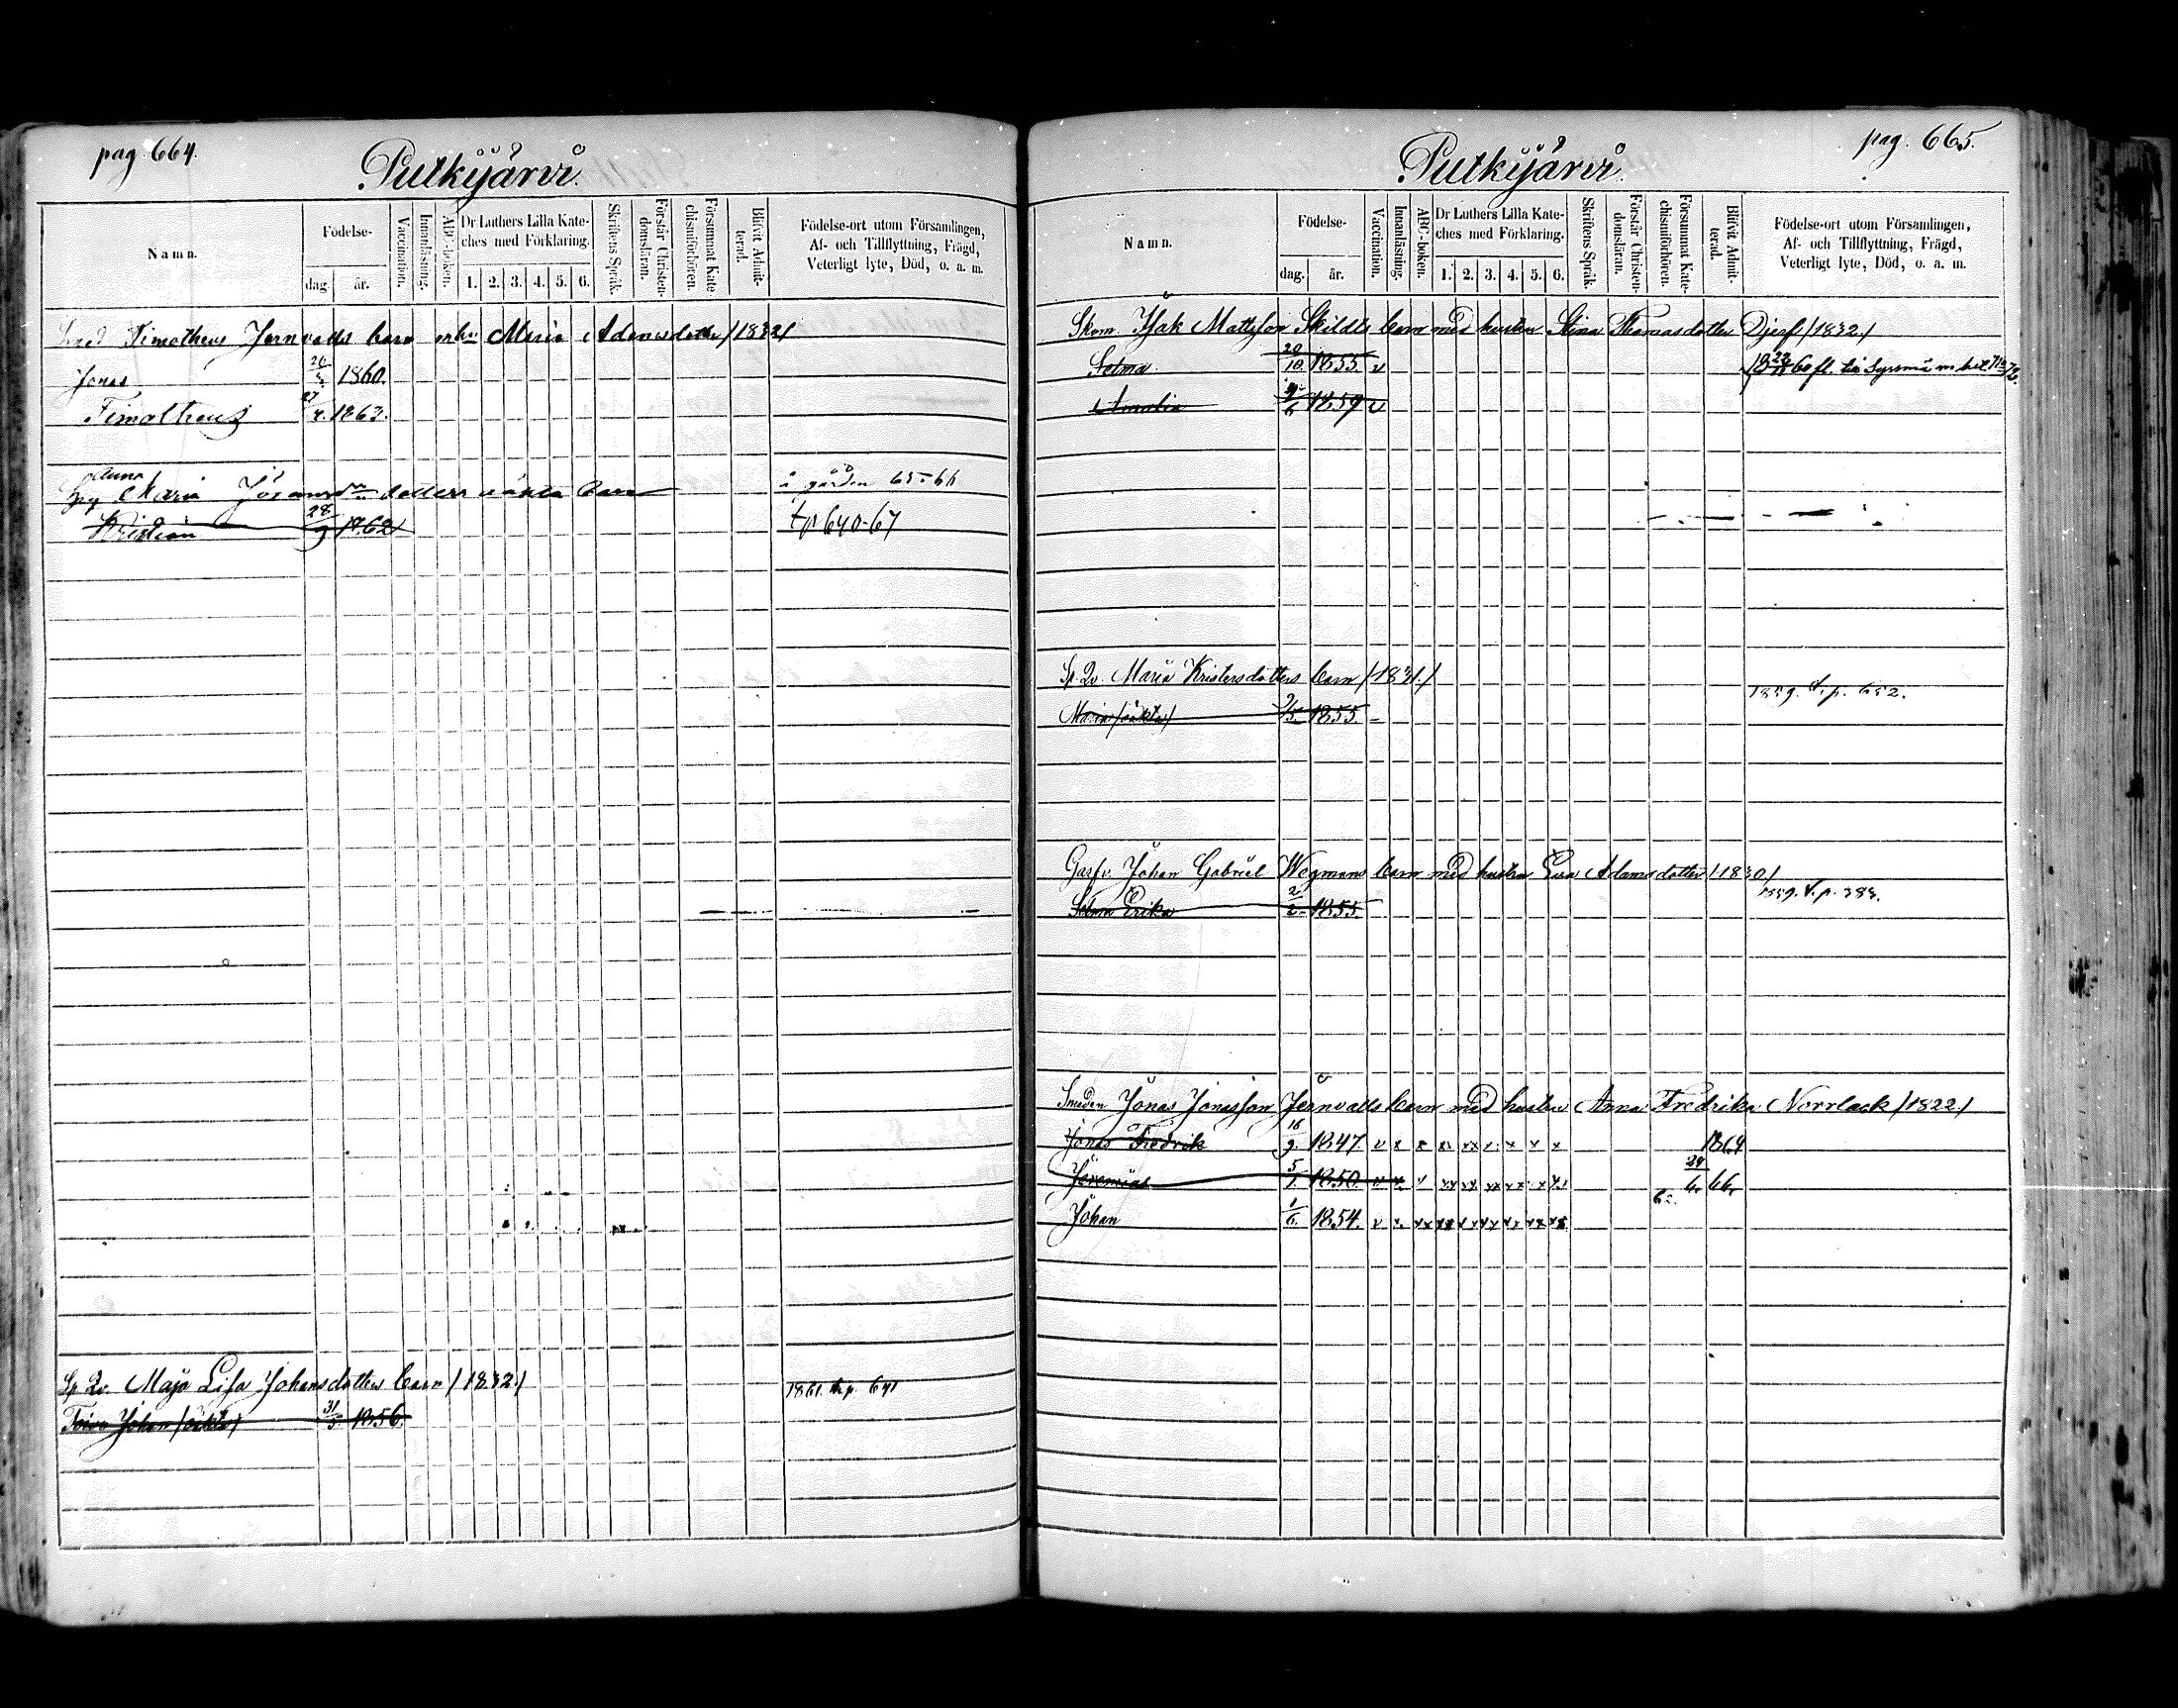 pag. 664.
Putkijärvi.
Namn.
Födelse-
dag.
år.
Vaccination.
Innanläsning.
ABC-boken.
Dr Luthers Lilla Kate-
ches med Förklaring.
1. 2. 3. 4. 5. 6.
Skriftens Språk.
Förstår Christen-
domsläran.
Försummat Kate-
chismiförhören.
Blifvit Admit-
terad.
Födelse-ort utom Församlingen,
Af- och Tillflyttning, Frägd,
Veterligt lyte, Död, o. a. m.
Timotheus Jernvalls barn Maria Adamsdotter /1832/
Jonas 1860.
Timotheus 27 1863.
Anna
Maria dotters oäkta barn å gården 65-66
Kristian 28/9 1862 tp 640-67
Sp. Qv. Maja Lisa Johansdotters barn /1832/
Toivo Johan /oäkta/ 31/5 1856. 1861. t. p. 641
pag. 665.
Putkijärvi.
Namn.
Födelse-
dag.
år.
Vaccination.
Innanläsning.
ABC-boken.
Dr Luthers Lilla Kate-
ches med Förklaring.
1. 2. 3. 4. 5. 6.
Skriftens Språk.
Förstår Christen-
domsläran.
Försummat Kate-
chismiförhören.
Blifvit Admit-
terad.
Födelse-ort utom Församlingen,
Af- och Tillflyttning, Frägd,
Veterligt lyte, Död, o. a. m.
Skom. Isak Mattsson Skildts barn med hustru Stina Thomasdotter Djerf /1832./
Selma 20/10 1855. v
Amalia 1859 v
Sp. Qv. Maria Kristersdotters barn /1831./
Maria /oäkta/ 1855. 1859. t. p. 652.
Garfv. Johan Gabriel Wegmans barn med hustru Eva Adamsdotter /1830/
Selma Erika 2/2 1855. 1859. t. p. 383.
Smeden Jonas Jonasson Jernvalls barn med hustru Anna Fredrika Norrlack /1822./
Jonas Fredrik 16/9 1847 v x x xx xx x x x x 1864
Jeremias 5/1 1850.
Johan 1/6 1854.